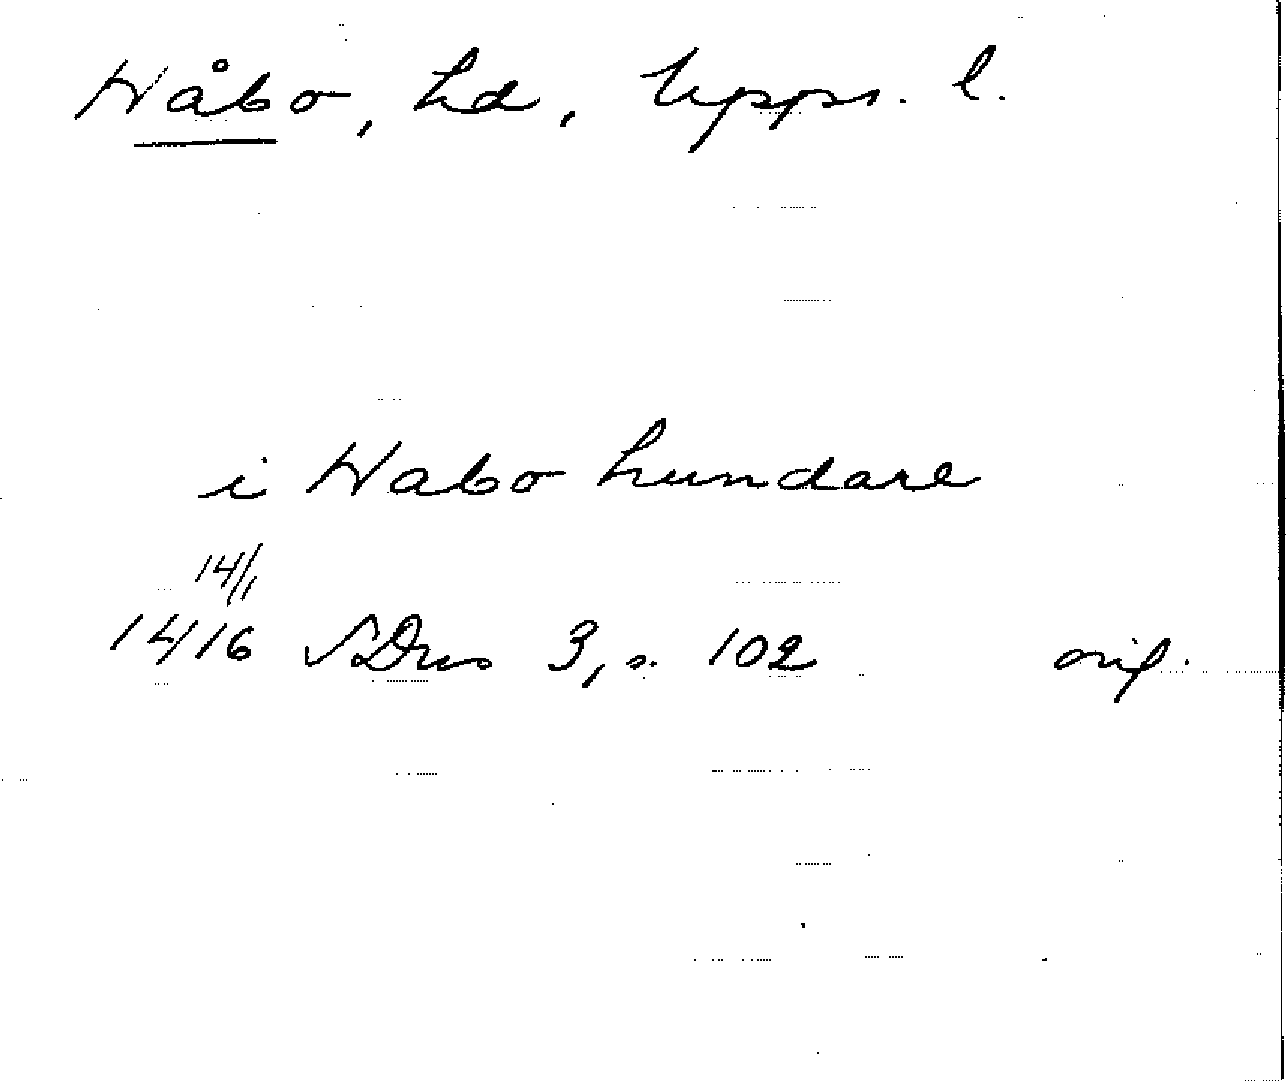 Håbo, hd, Upps. l.
i Habo hundare
14/1
1416 SDns 3, s. 102 orig.